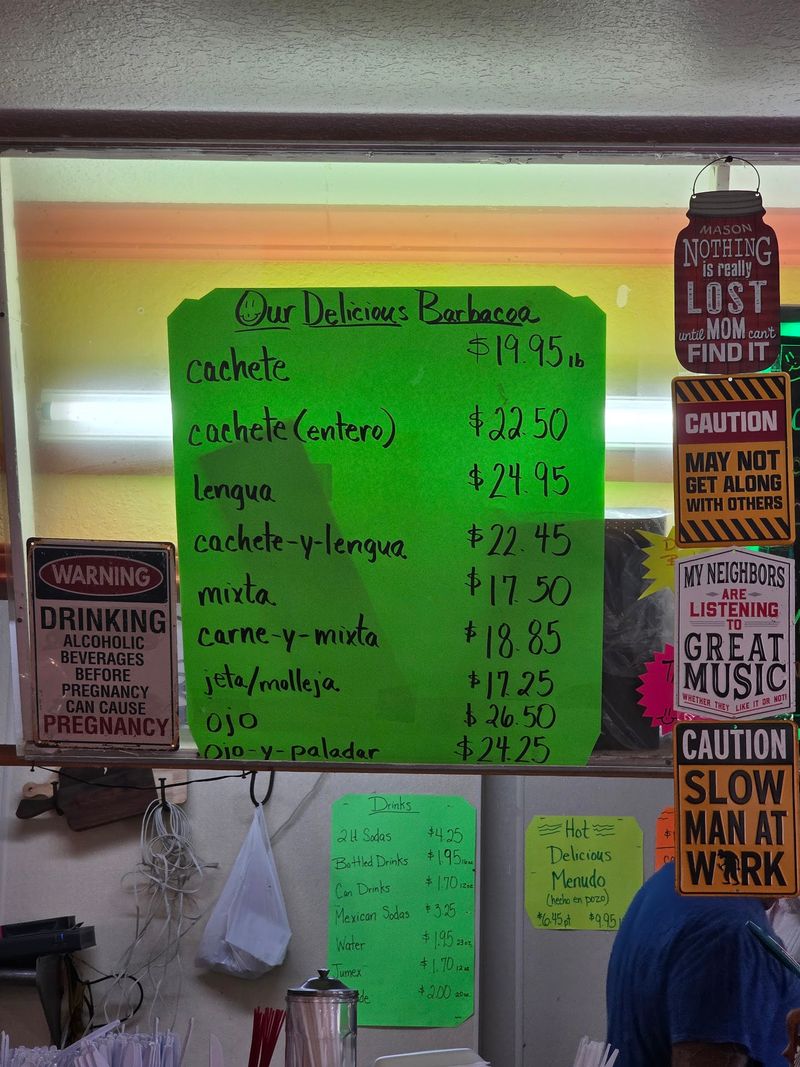 Our Delicious Barbacoa
cachete $19.95 lb
cachete (entero) $22.50
lengua $24.95
cachete-y-lengua $22.45
mixta $17.50
carne-y-mixta $18.85
jeta/molleja $17.25
ojo $26.50
ojo-y-paladar $24.25
WARNING
DRINKING
ALCOHOLIC
BEVERAGES
BEFORE
PREGNANCY
CAN CAUSE
PREGNANCY
MASON
NOTHING
is really
LOST
until MOM can't
FIND IT
CAUTION
MAY NOT
GET ALONG
WITH OTHERS
MY NEIGHBORS
ARE
LISTENING
TO
GREAT
MUSIC
WHETHER THEY LIKE IT OR NOT!
CAUTION
SLOW
MAN AT
WORK
Drinks
2 lt Sodas $4.25
Bottled Drinks $1.95
Can Drinks $1.70 12oz
Mexican Sodas $3.25
Water $1.95
Jumex $1.70
$2.00
Hot
Delicious
Menudo
(hecho en pozo)
$6.45 pt $9.95